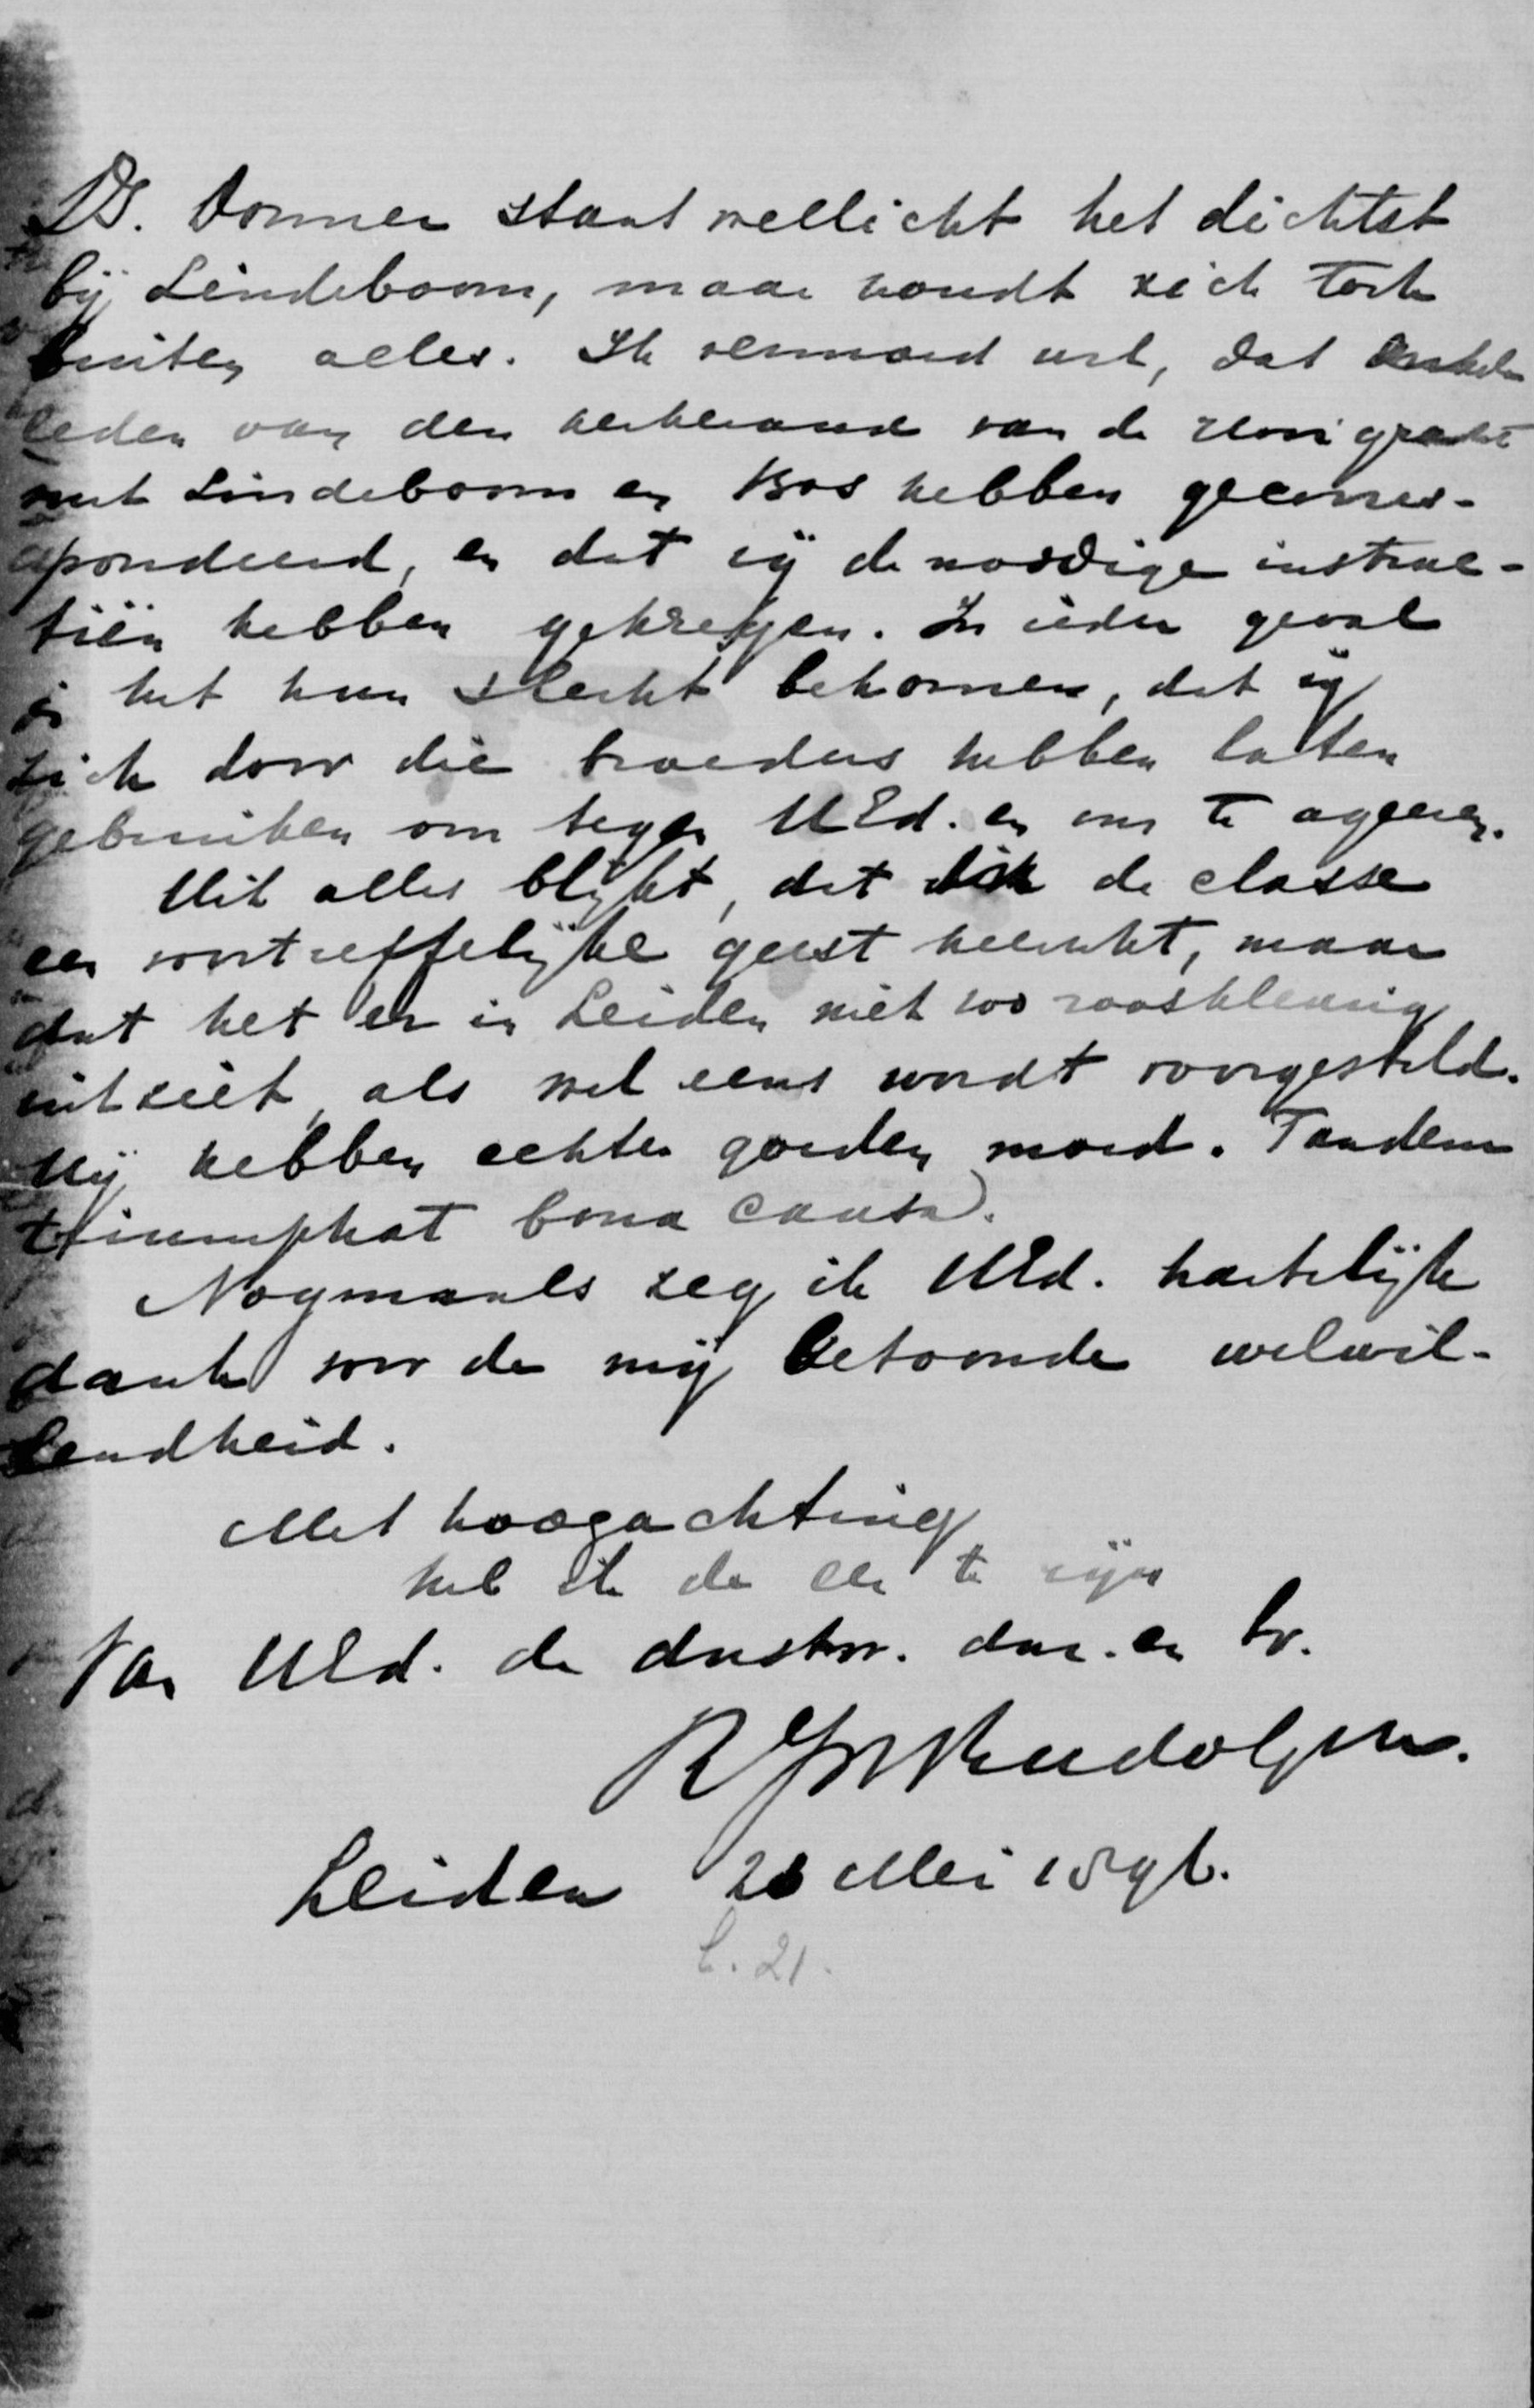 Ds. Donner staat wellicht het dichtst
bij Lindeboom, maar houdt zich toch
buiten alles. Ik vermoed wel, dat enkele
leden van den kerkeraad van de Hooigracht
met Lindeboom en Bos hebben gecorres-
pondeerd, en dat zij de noodige instruc-
tiën hebben gekregen. In ieder geval
is het hun slecht bekomen, dat zij
zich door die broeders hebben laten
gebruiken om tegen UEd. en ons te ageeren.
Uit alles blijkt, dat in de classe
een voortreffelijke geest heerscht, maar
dat het er in Leiden niet zoo rooskleurig
uitziet, als wel eens wordt voorgesteld.
Wij hebben echter goeden moed. Tandem
triumphat bona causa.
Nogmaals zeg ik UEd. hartelijk
dank voor de mij betoonde welwil-
lendheid.
Met hoogachting
heb ik de eer te zijn
Van UEd. de dnstw. dnr. en br.
Rudolph
Leiden Mei
21.